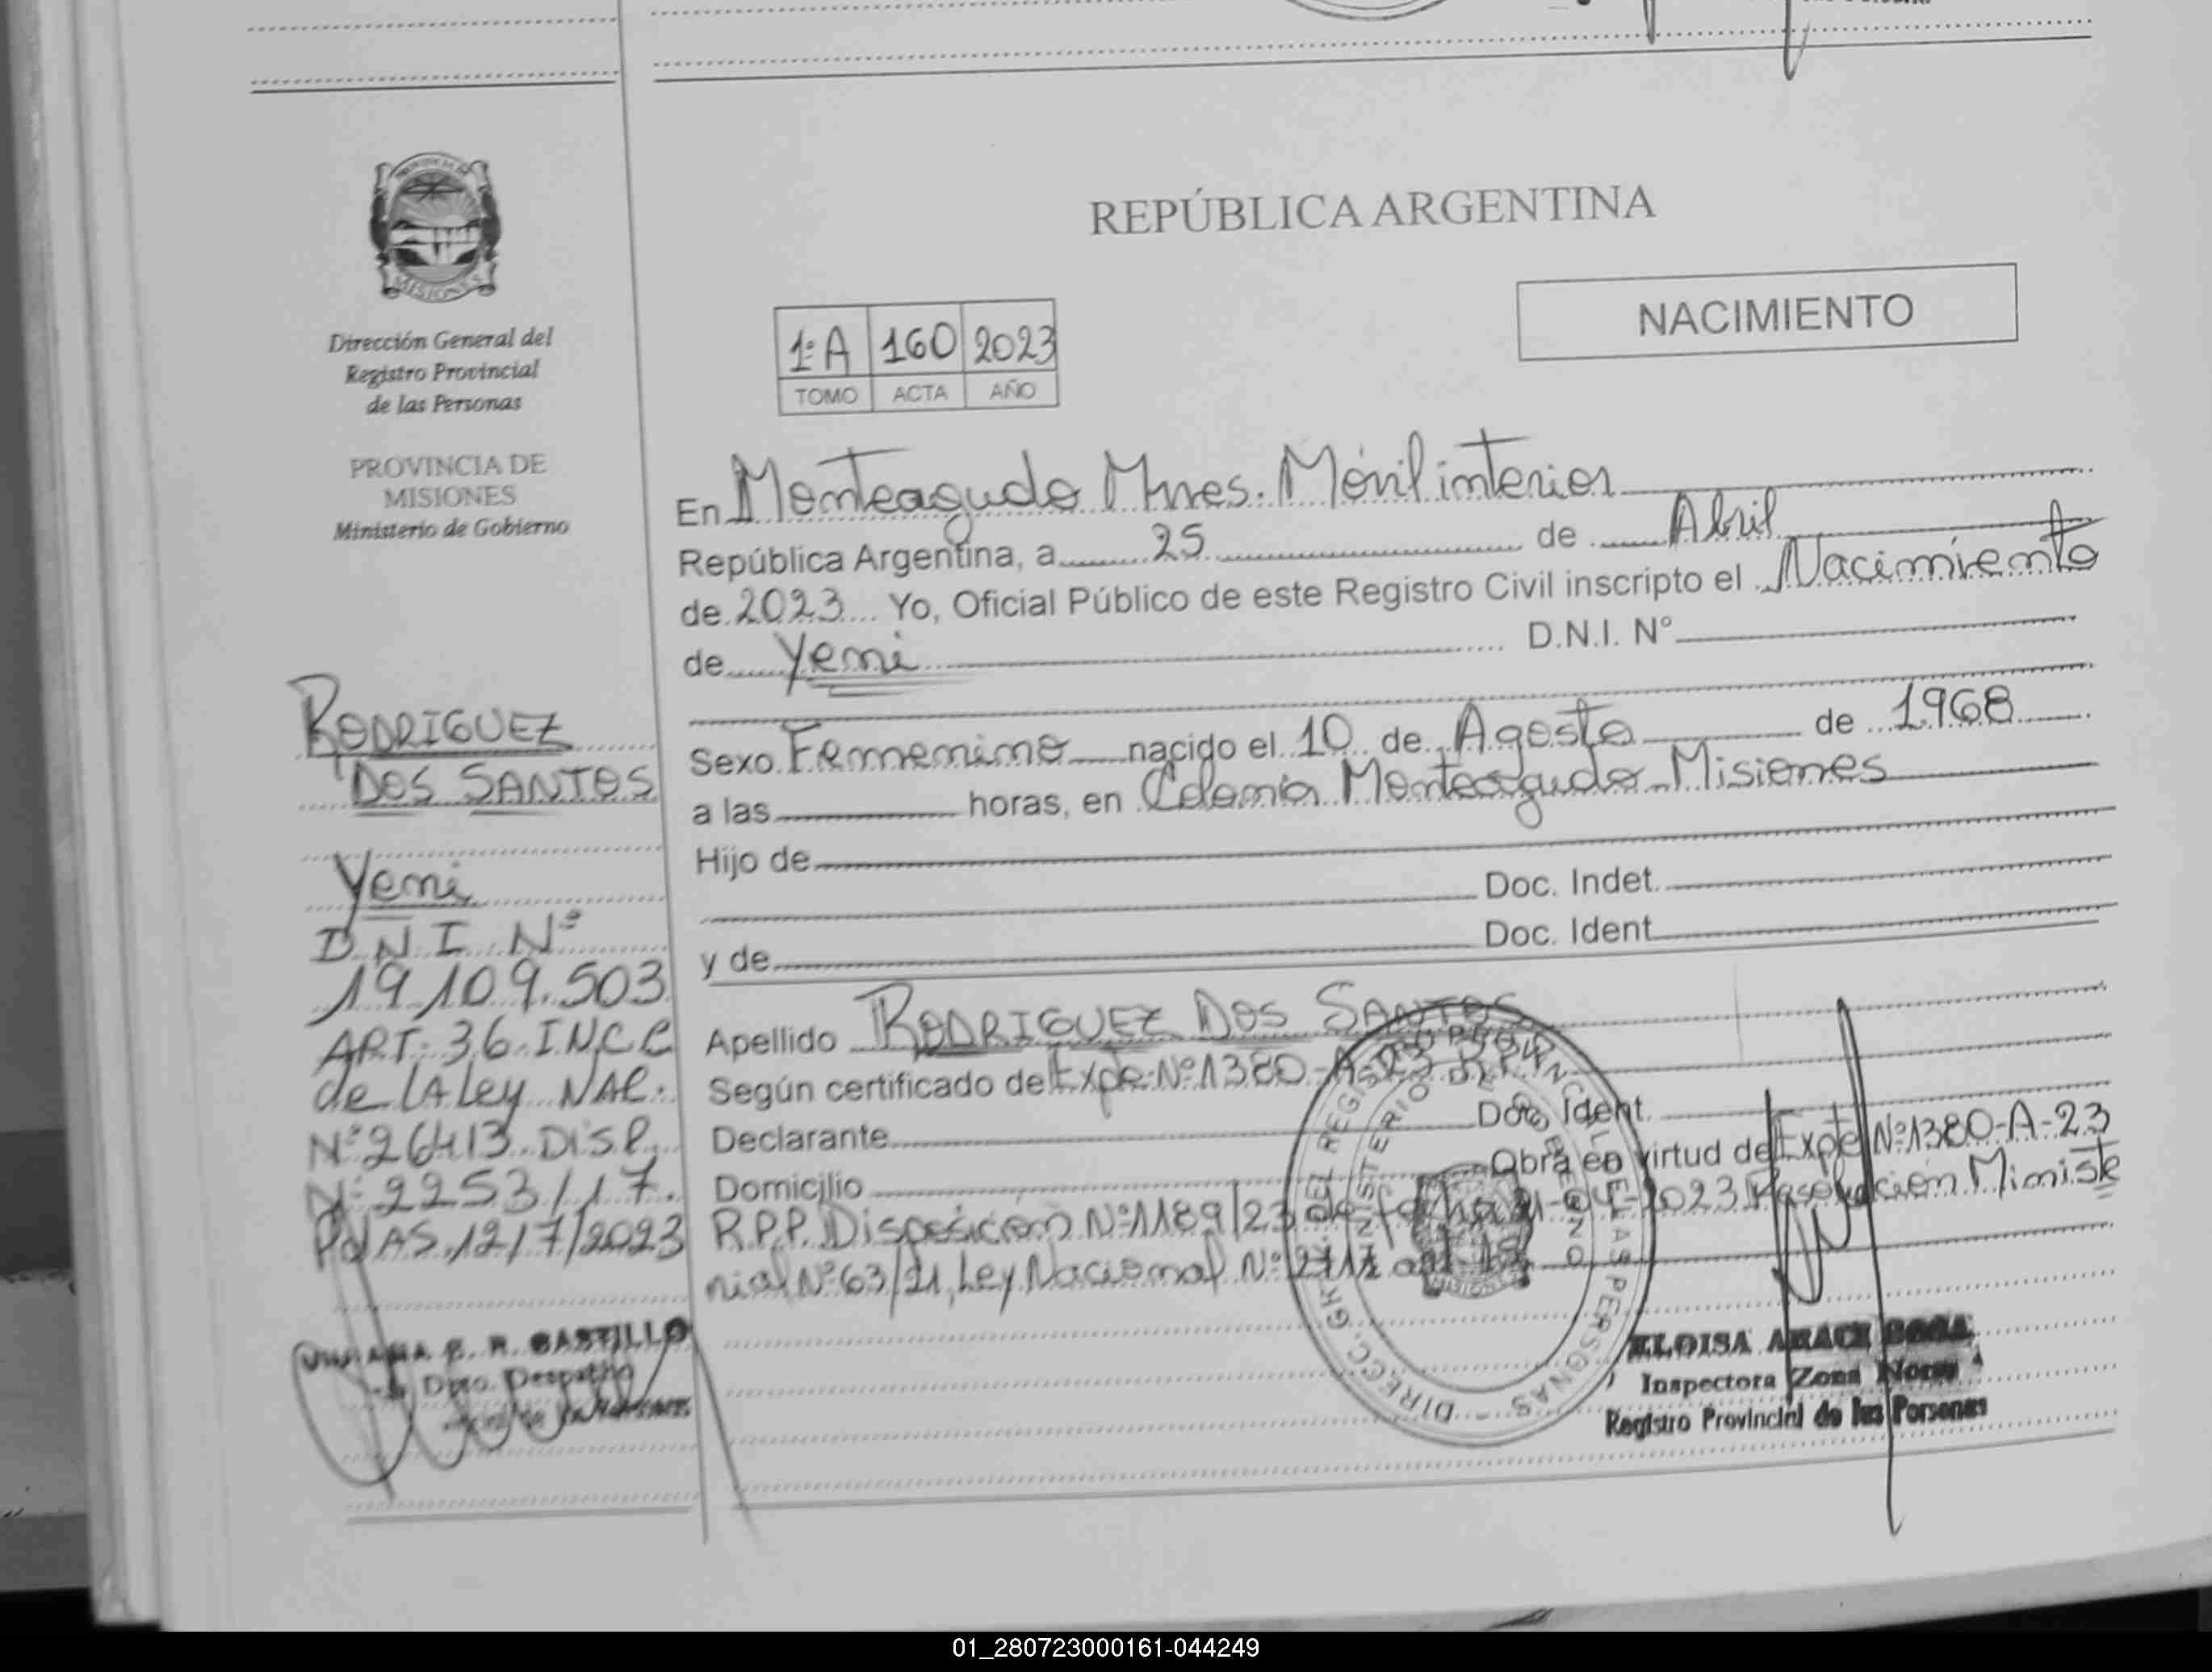 Dirección General del
Registro Provincial
de las Personas
PROVINCIA DE
MISIONES
Ministerio de Gobierno
RODRIGUEZ
DOS SANTOS
Yeni
D N I Nº
19.109.503
ART. 36 INC C
de LA Ley NAC.
Nº 26413 DISP.
Nº 2253/17.
PdAS. 12/7/2023
CASTILLO
Dpto. Despacho
REPÚBLICA ARGENTINA
NACIMIENTO
1ºA 160 2023
TOMO ACTA AÑO
En Monteagudo Mnes. Móvil interior
República Argentina, a 25 de Abril
de 2023 Yo, Oficial Público de este Registro Civil inscripto el Nacimiento
de Yeni D.N.I. N°
Sexo Femenino nacido el 10 de Agosto de 1968
a las horas, en Colonia Monteagudo - Misiones
Hijo de
Doc. Indet.
y de Doc. Ident
Apellido RODRIGUEZ DOS SANTOS
Según certificado de Expte Nº 1380-A-23 R.P.P.
Declarante Doc. Ident.
Domicilio Obra en virtud de Expte Nº 1380-A-23
R.P.P. Disposición Nº 1189/23 de fecha 21-04-2023 Resolución Ministe
rial Nº 63/21, Ley Nacional Nº
DIRECC. GRAL. DEL REGISTRO PROVINCIAL DE LAS PERSONAS
MINISTERIO DE GOBIERNO
MISIONES
ELOISA
Inspectora Zona Norte
Registro Provincial de las Personas
01_280723000161-044249